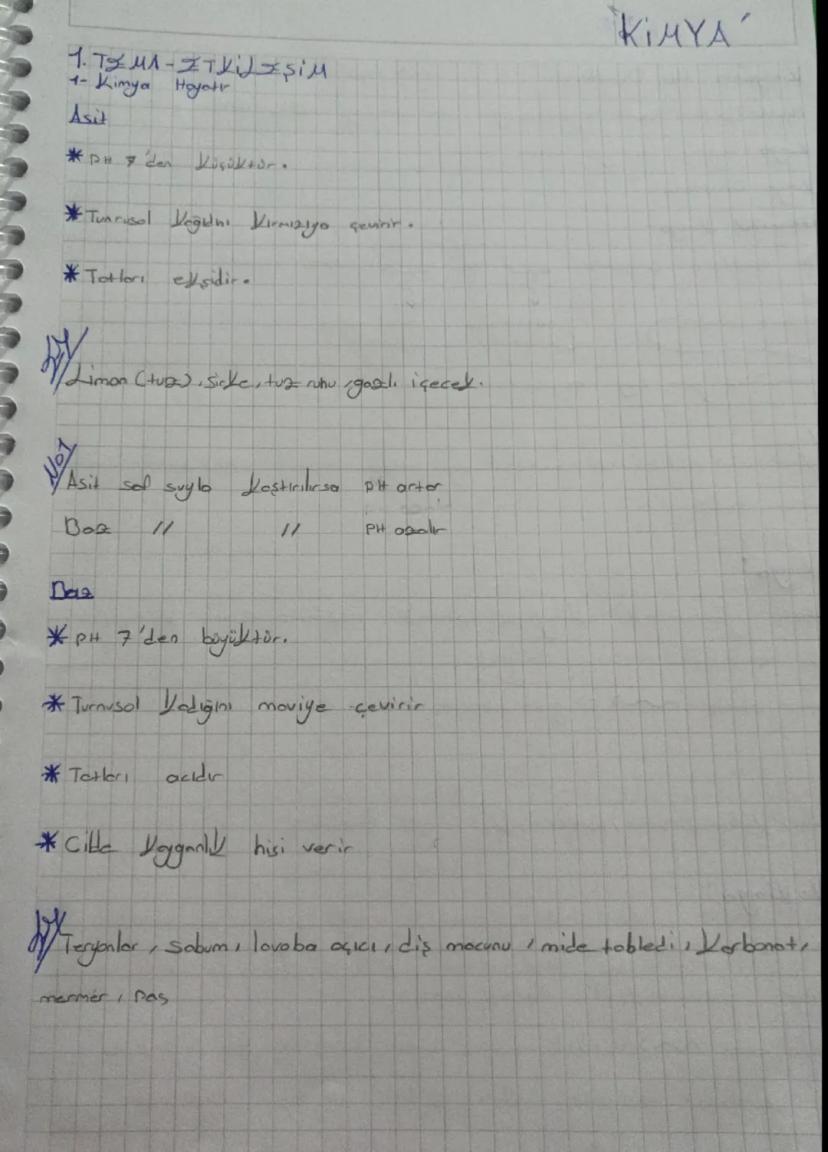 'KİMYA'
1. TEMA - ETKİLEŞİM
1- Kimya Hayatı
Asit
* PH 7'den küçüktür.
* Turnusol kağıdını kırmızıya çevirir.
* Tatları ekşidir.
Limon (tuz), sirke, tuz ruhu, gazlı içecek.
NOT
Asit saf suyla karıştırılırsa pH artar
Baz " " PH azalır
Baz
* PH 7'den büyüktür.
* Turnusol kağıdını maviye çevirir
* Tatları acıdır
* Cilde kayganlık hissi verir
sabun, lavoba açıcı, diş macunu, mide tabledi, Karbonat,
mermer, pas